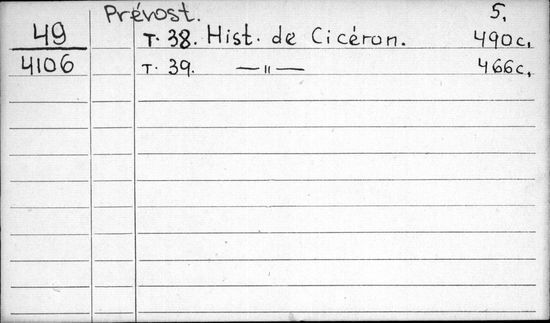 Prévost. 5.
49 т. 38. Hist. de Cicéron. 490 с.
4106 т. 39. —〃— 466 с.